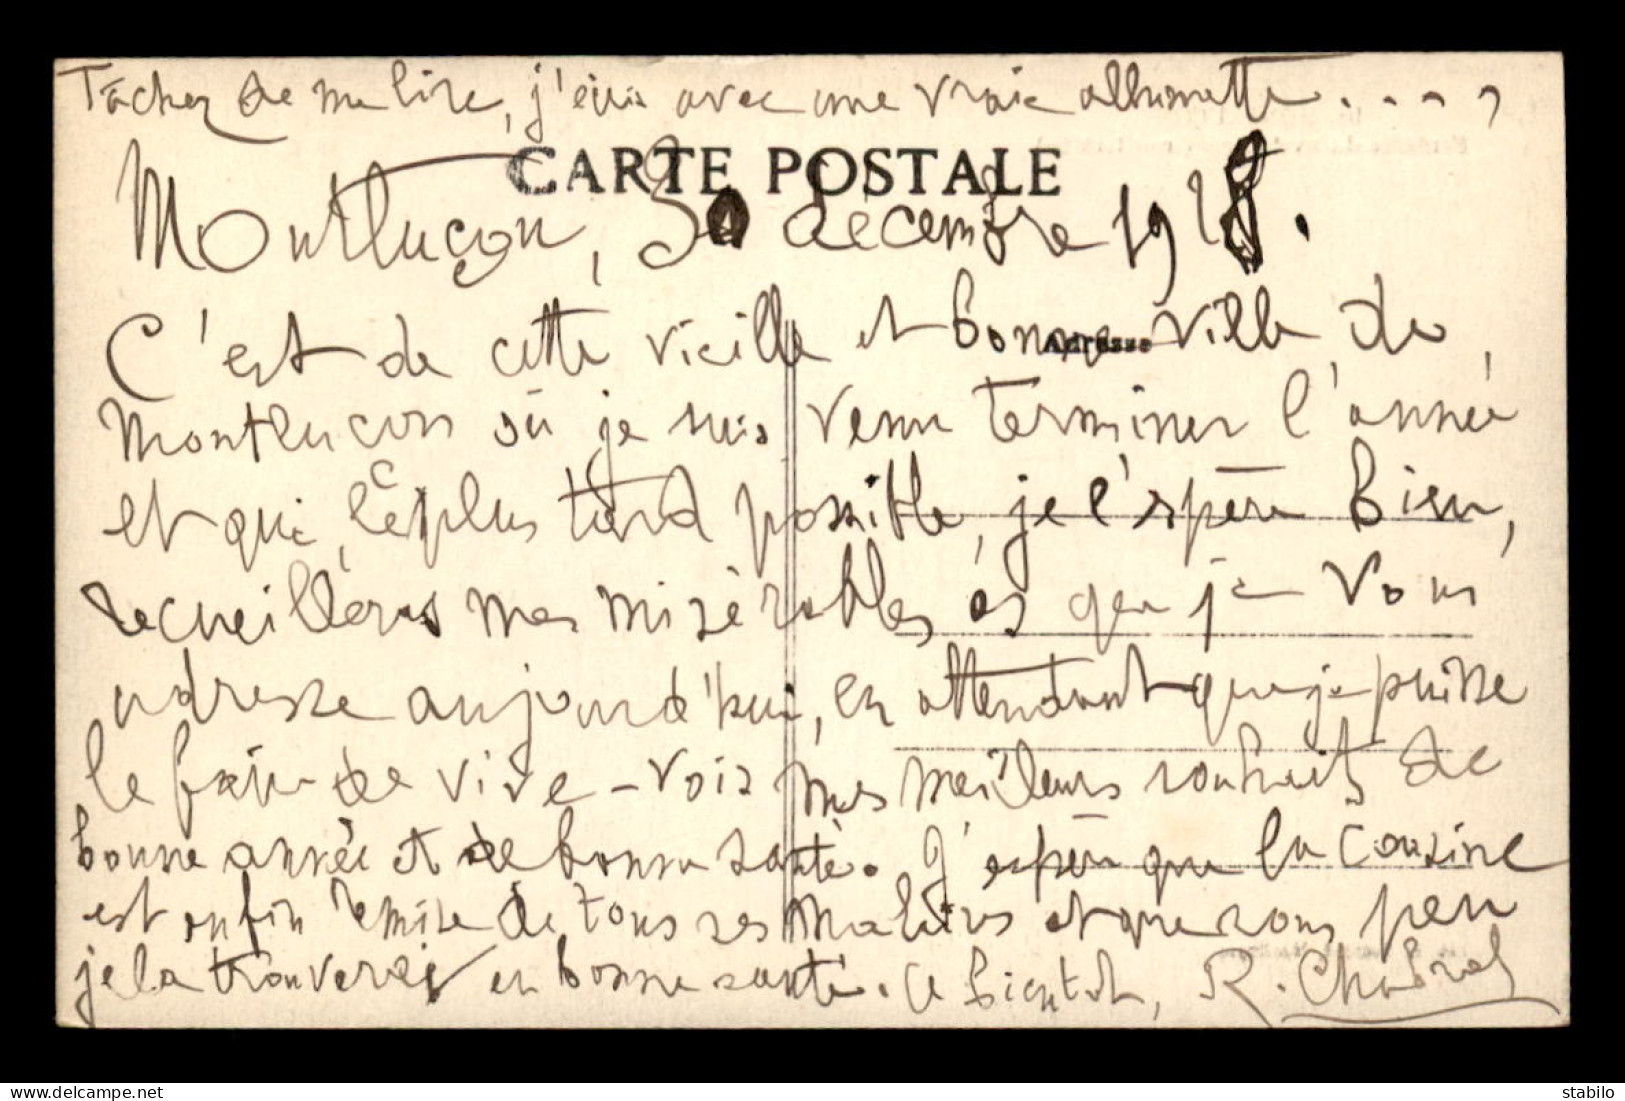 Tâchez de me lire, j'écris avec une vraie allumette....,
CARTE POSTALE
Montluçon, 30 décembre 1918.
Adresse
C'est de cette vieille et bonne ville de
Montluçon où je suis venu terminer l'année
et qui, le plus tard possible, je l'espère bien,
recueillera mes misérables os que je vous
adresse aujourd'hui, en attendant que je puisse
le faire de vive-voix mes meilleurs souhaits de
bonne année et de bonne santé. J'espère que la cousine
est enfin remise de tous ses malaises et que sous peu
je la trouverai en bonne santé. A bientôt, R. Chabrol
delcampe.net
stabilo